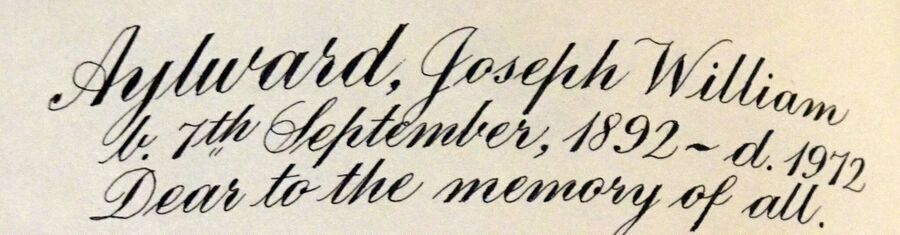 Aylward, Joseph William
b. 7th September, 1892 ~ d. 1972
Dear to the memory of all.